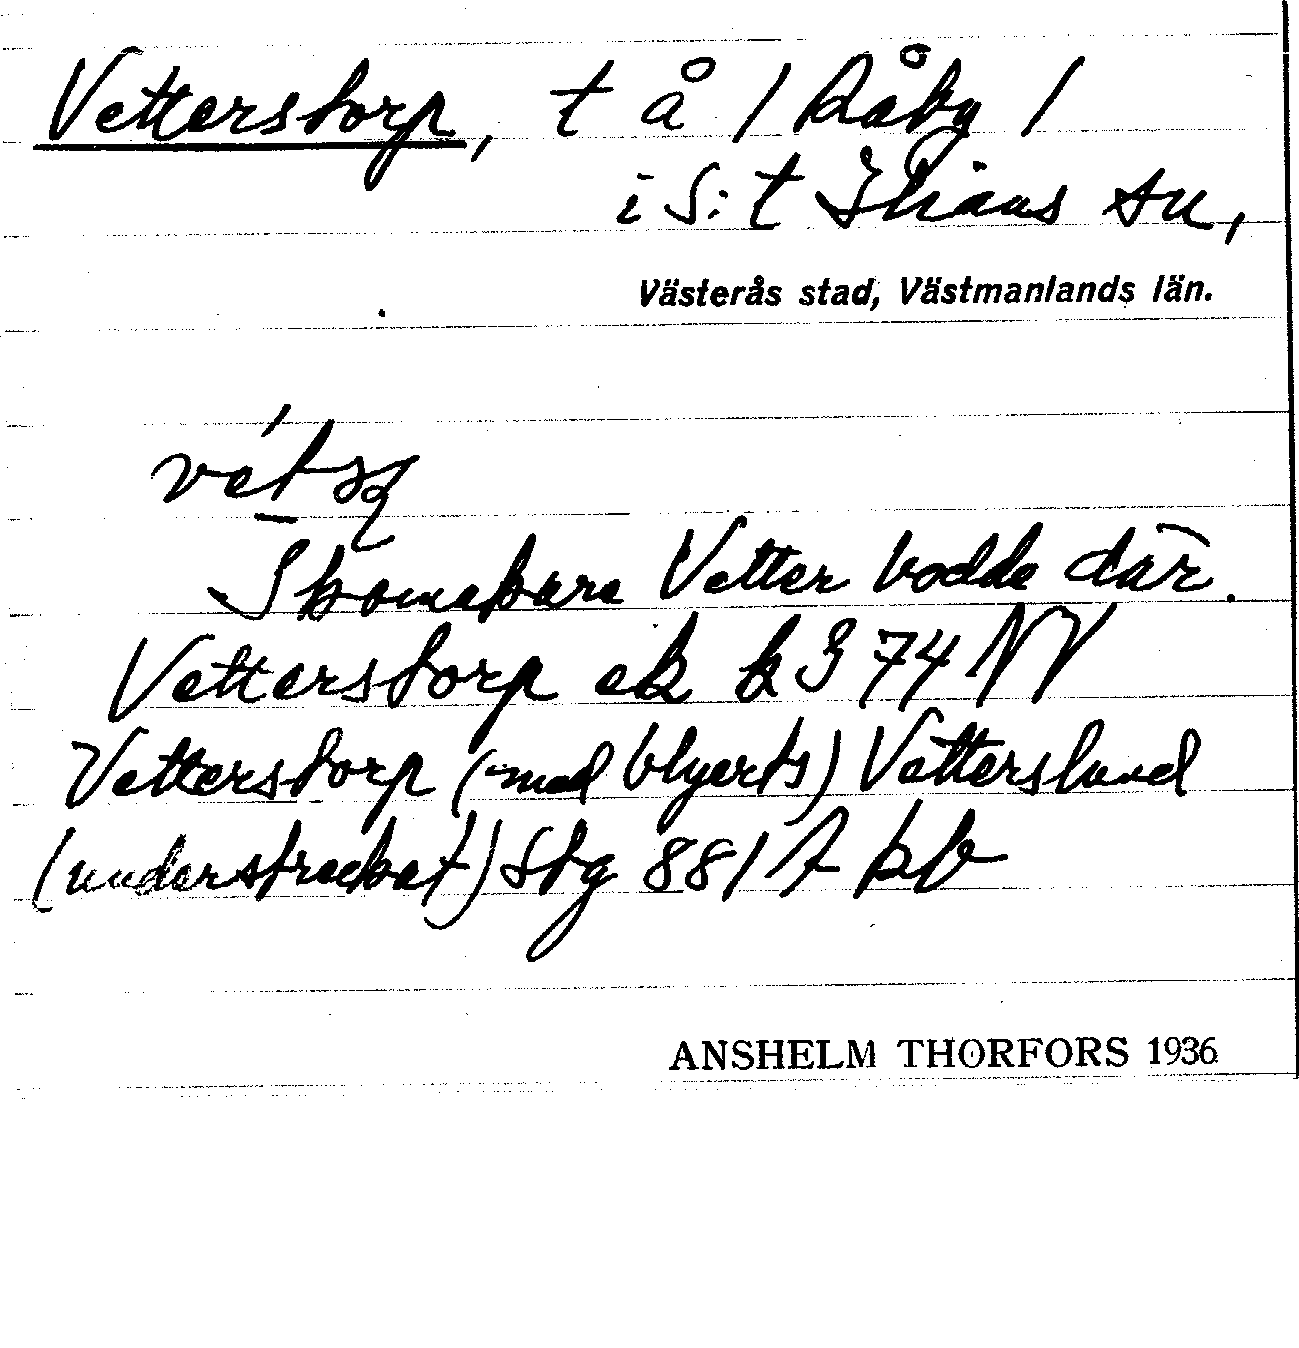 Vetterstorp, t å / Råby /
i S:t Ilians sn,
Västerås stad, Västmanlands län.
Skomakare Vetter bodde där.
Vetterstorp ek k 3 74 NV
Vetterstorp (med blyerts) Vetterslund
(understreckat) Stg 88/7 kb
ANSHELM THORFORS 1936